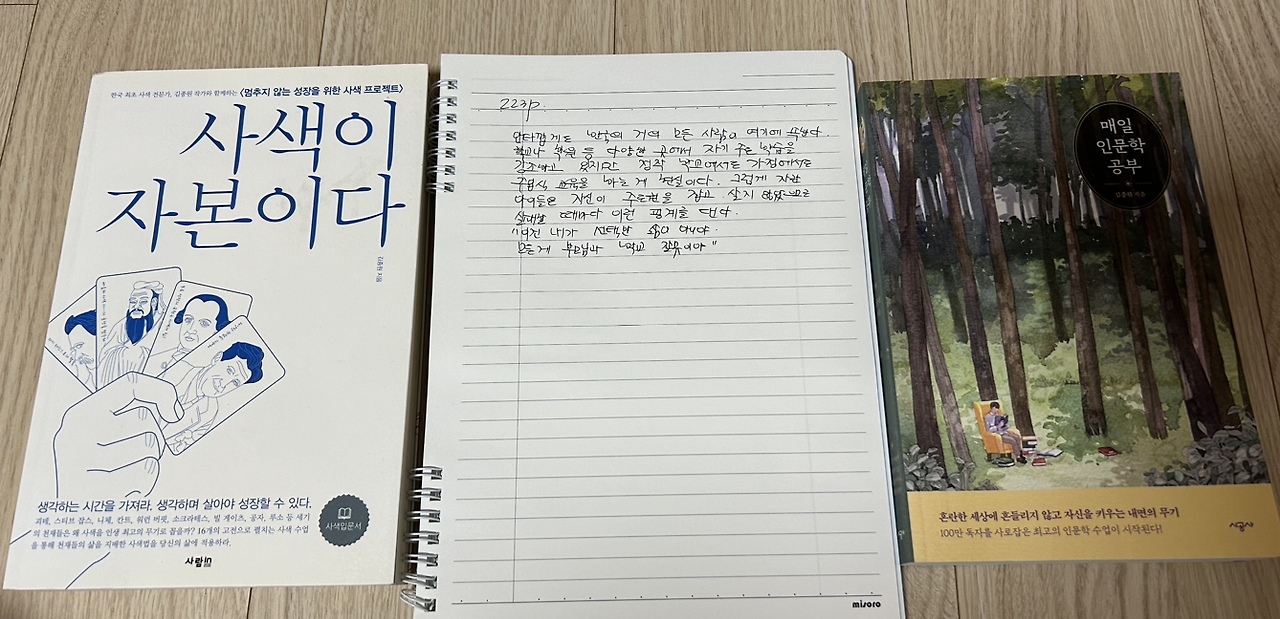 한국 최초 사색 전문가, 김종원 작가와 함께하는 〈멈추지 않는 성장을 위한 사색 프로젝트〉
사색이
자본이다
김종원 지음
생각하는 시간을 가져라, 생각하며 살아야 성장할 수 있다.
괴테, 스티브 잡스, 니체, 칸트, 워런 버핏, 소크라테스, 빌 게이츠, 공자, 루소 등 세기
의 천재들은 왜 사색을 인생 최고의 무기로 꼽을까? 16개의 고전으로 펼치는 사색 수업
을 통해 천재들의 삶을 지배한 사색법을 당신의 삶에 적용하라.
사색입문서
사람in
223p.
안타깝게도 한국의 거의 모든 사람이 여기에 속한다.
학교나 학원 등 다양한 곳에서 자기 주도 학습을
강조하고 있지만 정작 학교에서도 가정에서도
주입식 교육을 하는 게 현실이다. 그렇게 자란
아이들은 자신이 주도권을 잡고 살지 않았으므로
실패할 때마다 이런 핑계를 댄다.
"이건 내가 선택한 삶이 아니야.
모든 게 부모님과 학교 잘못이야"
misoro
매일
인문학
공부
김종원 지음
혼란한 세상에 흔들리지 않고 자신을 키우는 내면의 무기
100만 독자를 사로잡은 최고의 인문학 수업이 시작된다!
시공사